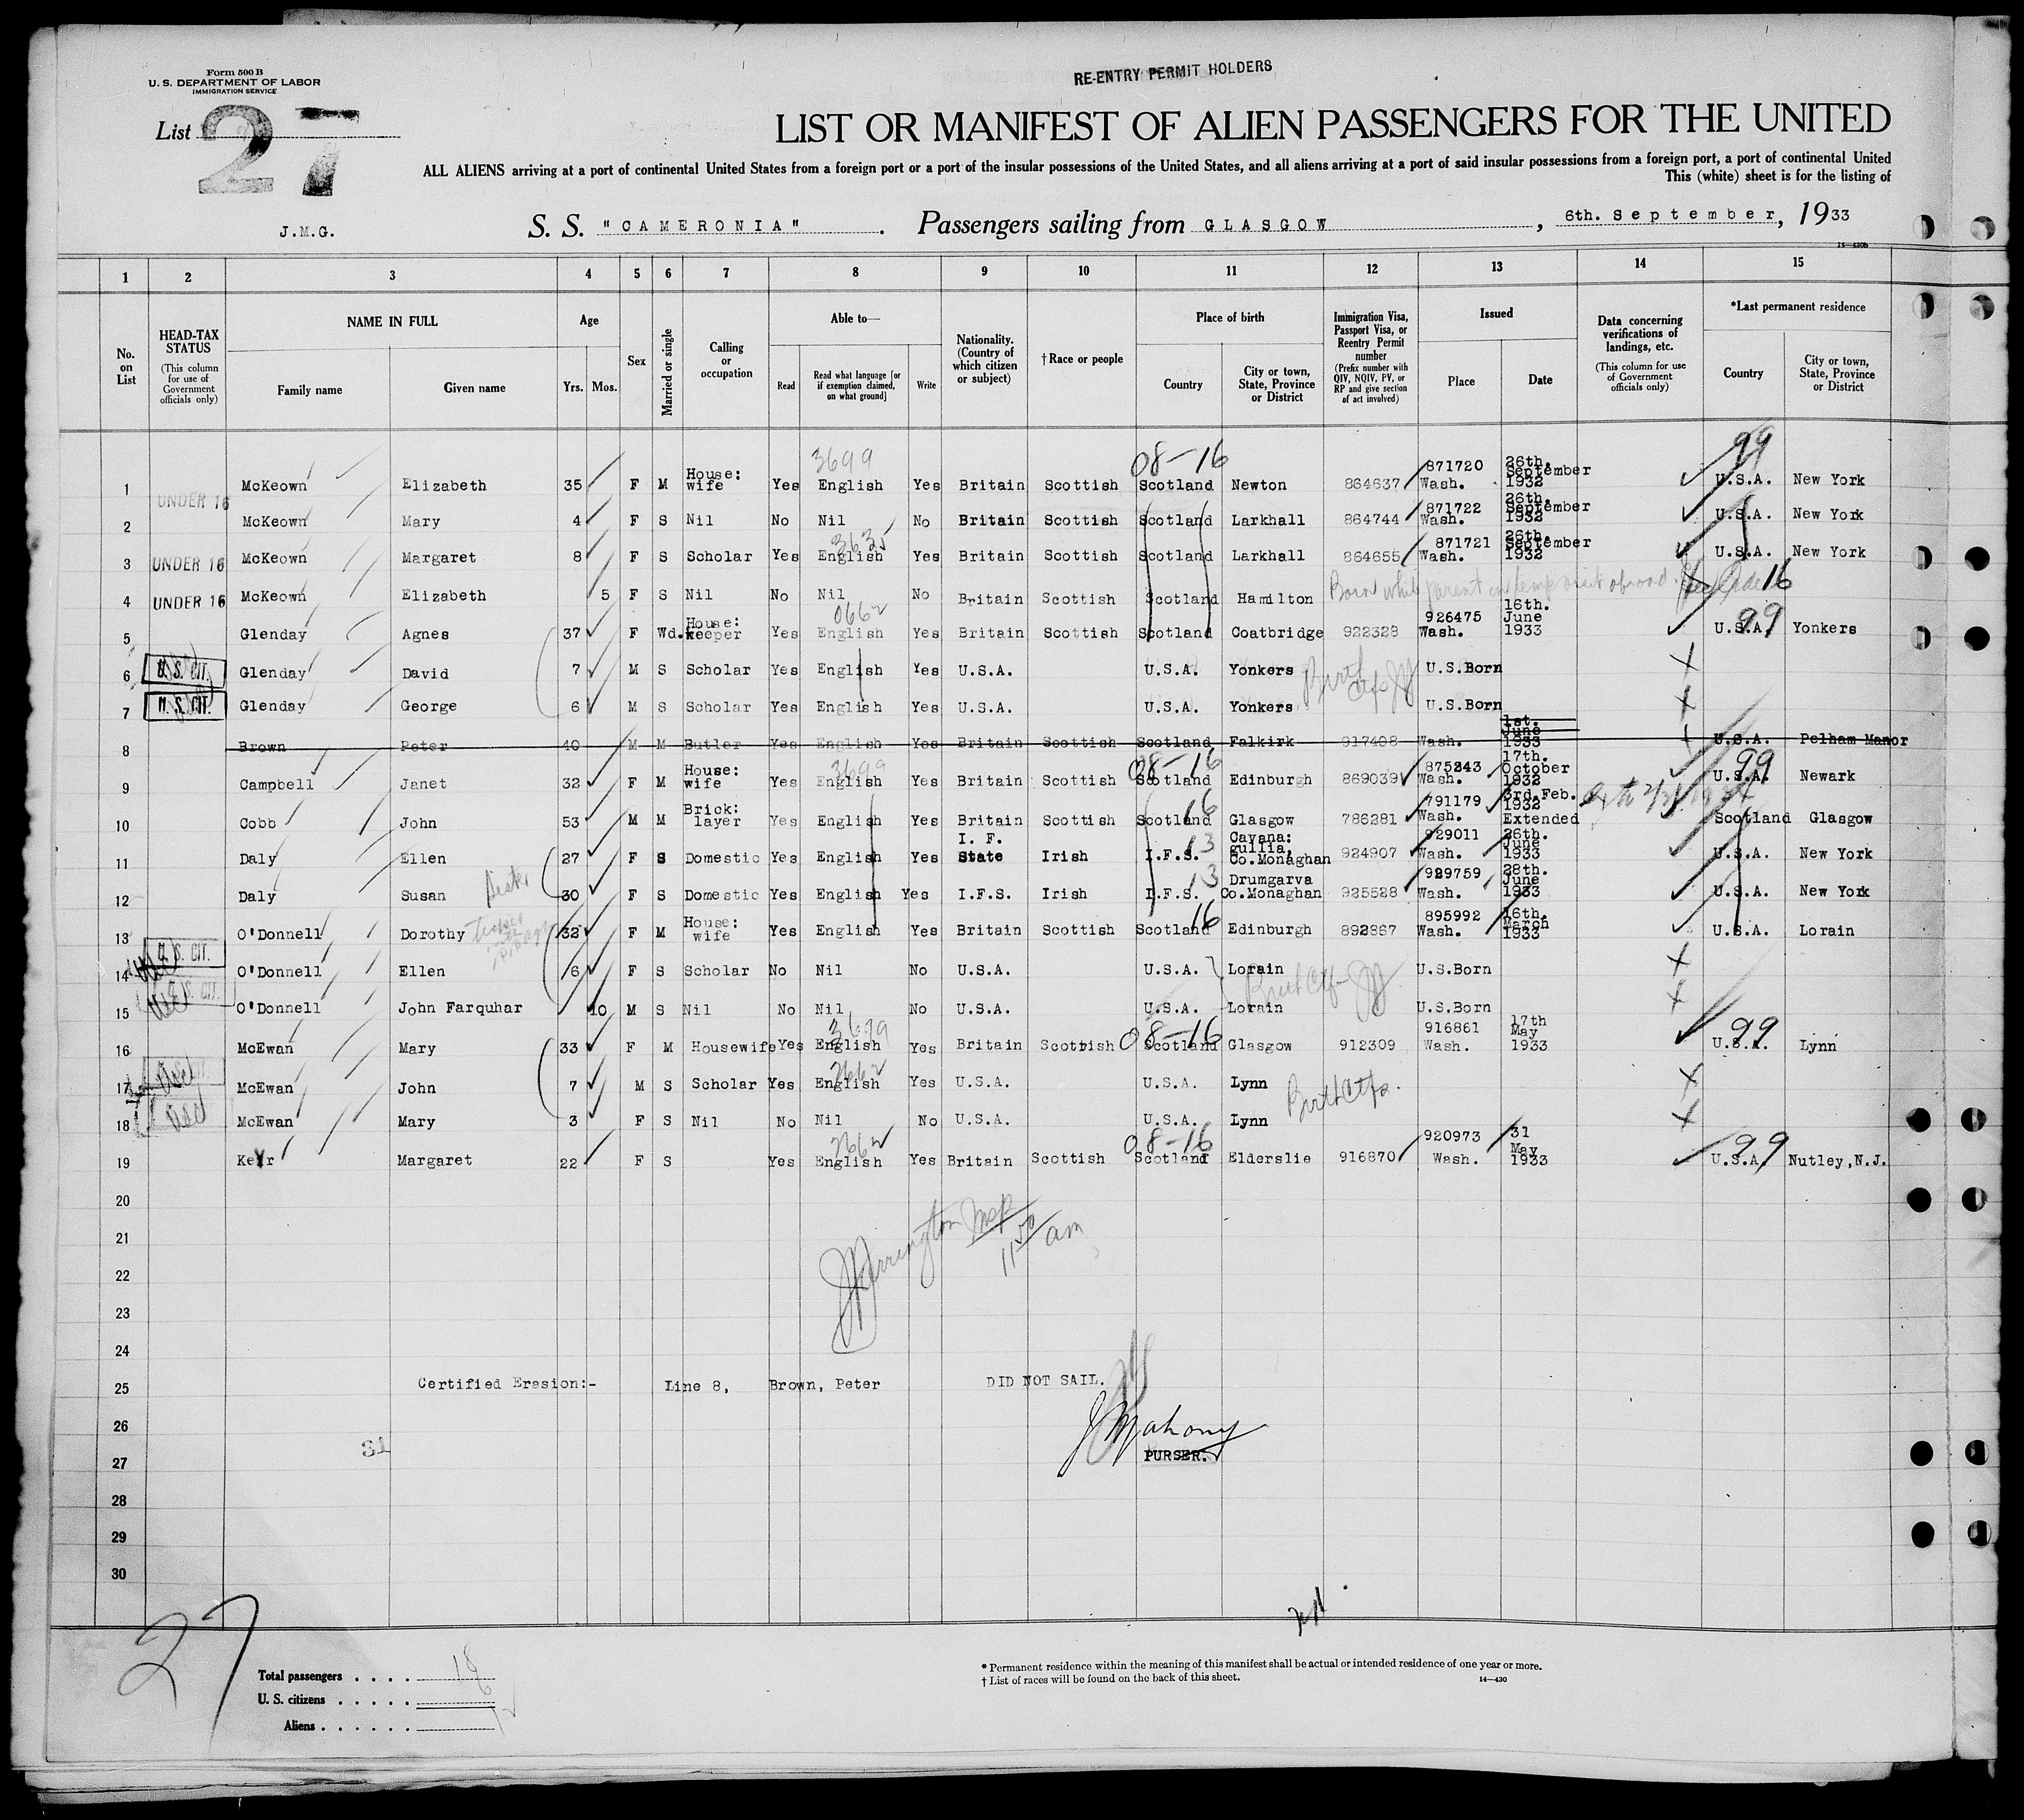 Form 500 B
U. S. DEPARTMENT OF LABOR
IMMIGRATION SERVICE
RE-ENTRY PERMIT HOLDERS
List 27
LIST OR MANIFEST OF ALIEN PASSENGERS FOR THE UNITED
ALL ALIENS arriving at a port of continental United States from a foreign port or a port of the insular possessions of the United States, and all aliens arriving at a port of said insular possessions from a foreign port, a port of continental United
This (white) sheet is for the listing of
J.M.G. S. S. "CAMERONIA". Passengers sailing from GLASGOW, 6th. September, 1933
14-430b
1 2 3 4 5 6 7 8 9 10 11 12 13 14 15
No. on List
HEAD-TAX STATUS (This column for use of Government officials only)
NAME IN FULL Family name Given name
Age Yrs. Mos.
Sex
Married or single
Calling or occupation
Able to— Read Read what language [or if exemption claimed, on what ground] Write
Nationality. (Country of which citizen or subject)
† Race or people
Place of birth Country City or town, State, Province or District
Immigration Visa, Passport Visa, or Reentry Permit number (Prefix number with QIV, NQIV, PV, or RP and give section of act involved)
Issued Place Date
Data concerning verifications of landings, etc. (This column for use of Government officials only)
*Last permanent residence Country City or town, State, Province or District
3699 08-16 99
1 McKeown Elizabeth 35 F M House: wife Yes English Yes Britain Scottish Scotland Newton 864637 871720 Wash. 26th. September 1932 U.S.A. New York
UNDER 16
2 McKeown Mary 4 F S Nil No Nil No Britain Scottish Scotland Larkhall 864744 871722 Wash. 26th. September 1932 U.S.A. New York
3635
3 UNDER 16 McKeown Margaret 8 F S Scholar Yes English Yes Britain Scottish Scotland Larkhall 864655 871721 Wash. 26th. September 1932 U.S.A. New York
4 UNDER 16 McKeown Elizabeth 5 F S Nil No Nil No Britain Scottish Scotland Hamilton Born while parent on temp visit abroad. 16
0662 99
5 Glenday Agnes 37 F Wd. House: keeper Yes English Yes Britain Scottish Scotland Coatbridge 922328 926475 Wash. 16th. June 1933 U.S.A. Yonkers
6 U.S. CIT. Glenday David 7 M S Scholar Yes English Yes U.S.A. U.S.A. Yonkers Birth Ctfs U.S.Born
7 U.S. CIT. Glenday George 6 M S Scholar Yes English Yes U.S.A. U.S.A. Yonkers U.S.Born
8 Brown Peter 40 M M Butler Yes English Yes Britain Scottish Scotland Falkirk 917408 Wash. 1st. June 1933 U.S.A. Pelham Manor
3699 08-16 99
9 Campbell Janet 32 F M House: wife Yes English Yes Britain Scottish Scotland Edinburgh 869039 875243 Wash. 17th. October 1932 U.S.A. Newark
16
10 Cobb John 53 M M Brick: layer Yes English Yes Britain Scottish Scotland Glasgow 786281 791179 Wash. 3rd.Feb. 1932 Extended Scotland Glasgow
13
11 Daly Ellen 27 F S Domestic Yes English Yes I. F. State Irish I.F.S. Cavana: gullia, Co.Monaghan 924907 929011 Wash. 26th. June 1933 U.S.A. New York
Sister 13
12 Daly Susan 30 F S Domestic Yes English Yes I.F.S. Irish I.F.S. Drumgarva Co.Monaghan 925528 929759 Wash. 28th. June 1933 U.S.A. New York
16
13 O'Donnell Dorothy 32 F M House: wife Yes English Yes Britain Scottish Scotland Edinburgh 892867 895992 Wash. 16th. March 1933 U.S.A. Lorain
U.S. CIT.
14 O'Donnell Ellen 6 F S Scholar No Nil No U.S.A. U.S.A. Lorain Birth Ctfs U.S.Born
U.S. CIT.
15 O'Donnell John Farquhar 10 M S Nil No Nil No U.S.A. U.S.A. Lorain U.S.Born
3699 08-16 99
16 McEwan Mary 33 F M Housewife Yes English Yes Britain Scottish Scotland Glasgow 912309 916861 Wash. 17th May 1933 U.S.A. Lynn
2662
17 McEwan John 7 M S Scholar Yes English Yes U.S.A. U.S.A. Lynn Birth Ctfs.
18 McEwan Mary 3 F S Nil No Nil No U.S.A. U.S.A. Lynn
2662 08-16 99
19 Kerr Margaret 22 F S Yes English Yes Britain Scottish Scotland Elderslie 916870 920973 Wash. 31 May 1933 U.S.A. Nutley,N.J.
20
21 11 50 am
22
23
24
25 Certified Erasion:- Line 8, Brown, Peter DID NOT SAIL.
26 J Mahony
31
27 PURSER.
28
29
30
27
Total passengers . . . . 18
U. S. citizens . . . . . 6
Aliens . . . . . . 12
* Permanent residence within the meaning of this manifest shall be actual or intended residence of one year or more.
† List of races will be found on the back of this sheet.
14—430